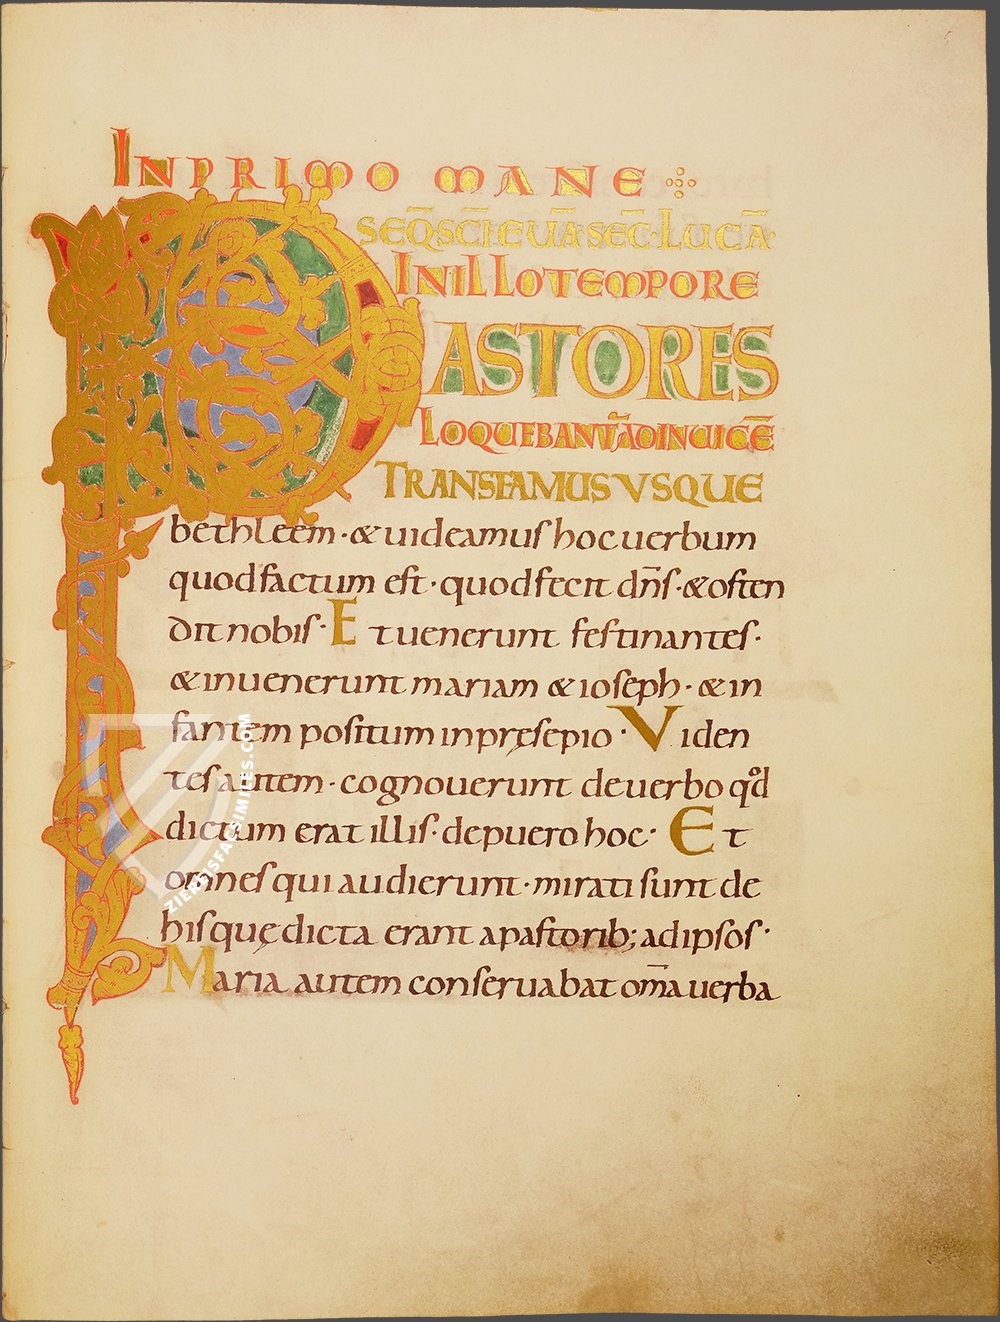 INPRIMO MANE
SEQ̄·SC̄I·EVĀ·SEC̄·LUCĀ·
IN ILLO TEMPORE
PASTORES
LOQUEBANT᷑ ADINUICĒ
TRANSEAMUS VSQUE
bethleem · & uideamuſ hoc uerbum
quod factum eſt · quod fecit dn̄ſ · & oſten
dit nobiſ · Et uenerunt feſtinanteſ ·
& inuenerunt mariam & ioſeph · & in
fantem poſitum in preſepio · Viden
teſ autem · cognouerunt de uerbo qd̄
dictum erat illiſ · de puero hoc · Et
omneſ qui audierunt · mirati ſunt de
hiſ quę dicta erant a paſtorib; ad ipſoſ ·
Maria autem conſeruabat om̄a uerba
ZIEREISFACSIMILES.COM